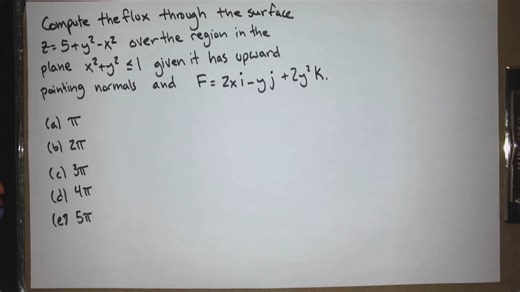 Compute the flux through the surface
z=5+y²-x² over the region in the
plane x²+y² ≤1 given it has upward
pointing normals and F=2xi-yj+2y²k.
(a) π
(b) 2π
(c) 3π
(d) 4π
(e) 5π